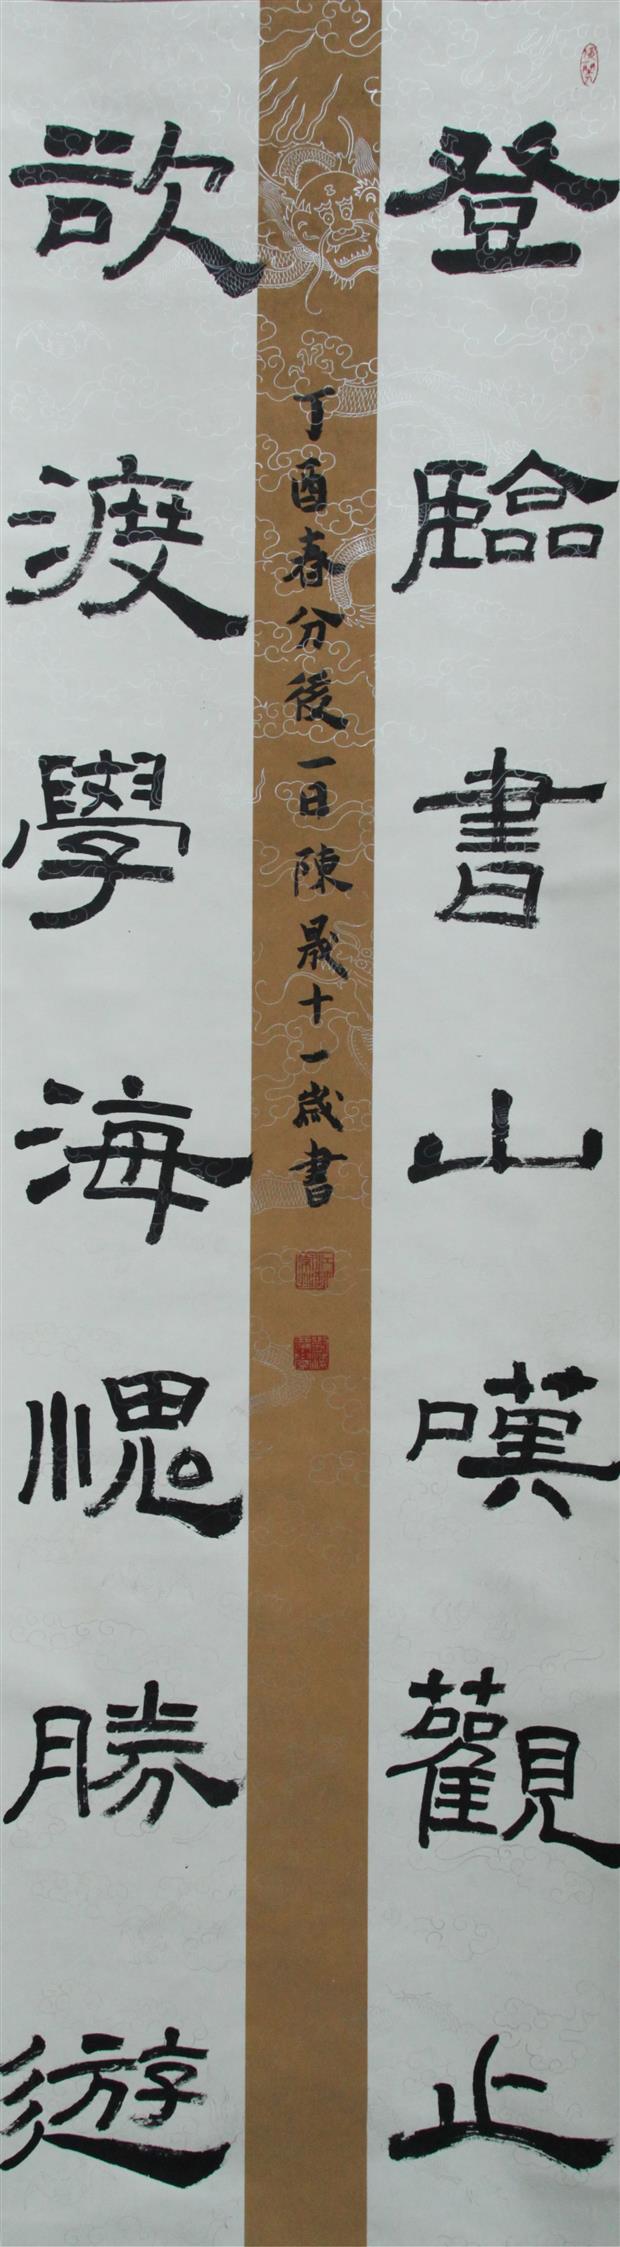 登臨書山嘆觀止
欲渡學海愧勝遊
丁酉春分後一日陳晟十一歲書